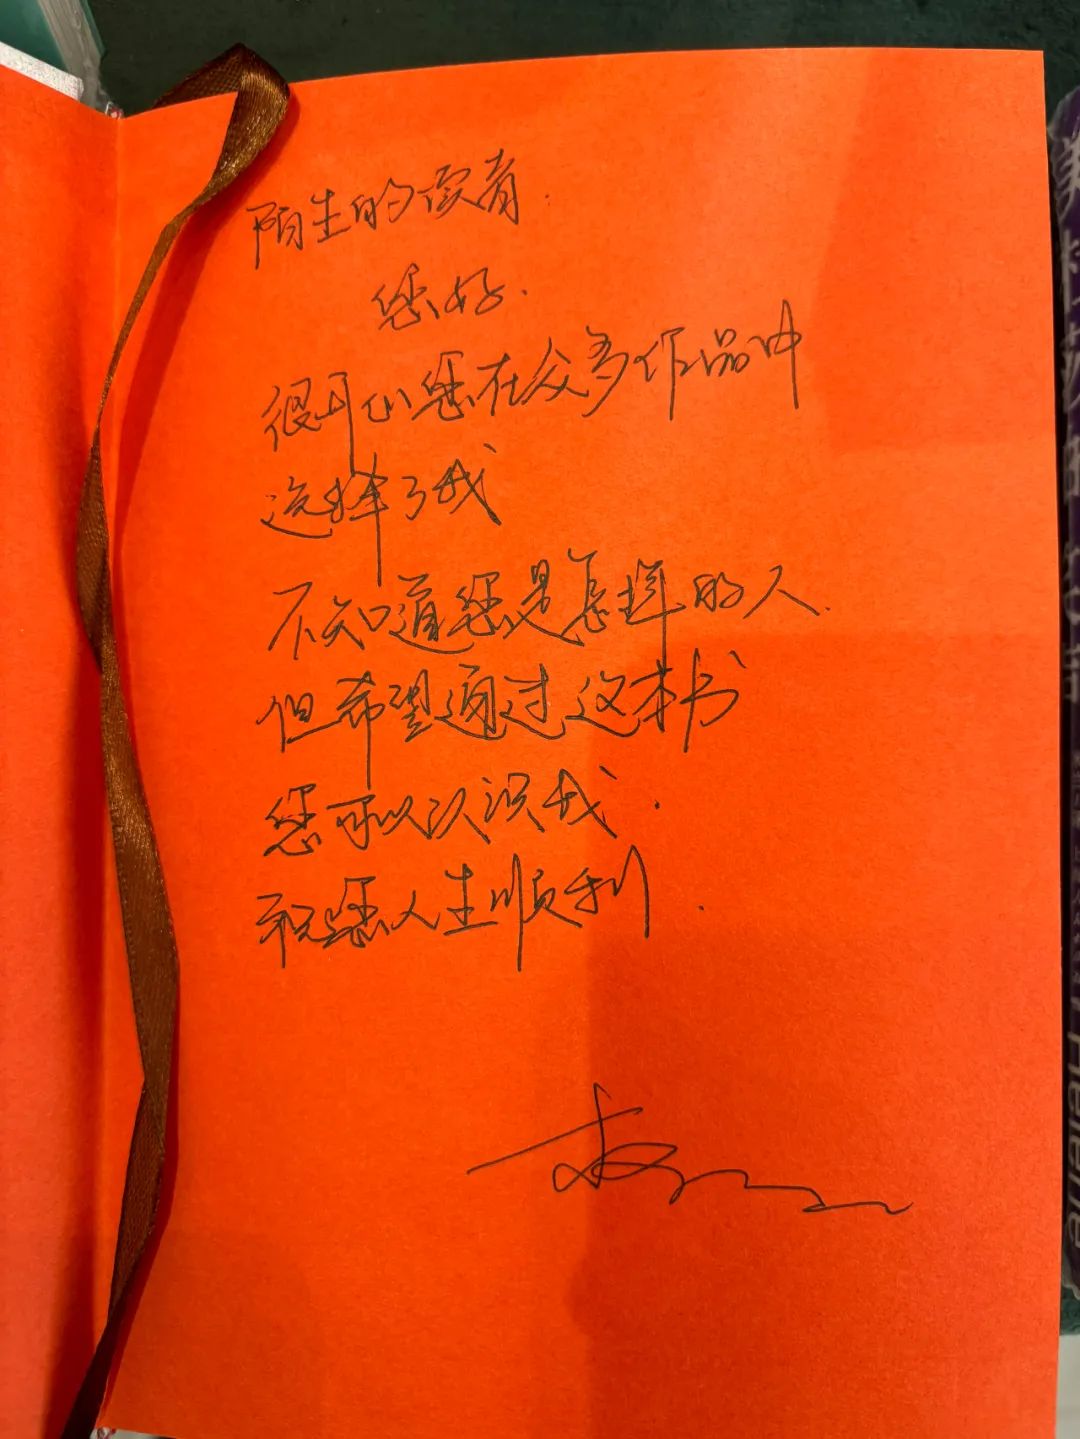 陌生的读者.
您好.
很开心您在众多作品中
选择了我
不知道您是怎样的人.
但希望通过这本书
您可以认识我.
祝您人生顺利.